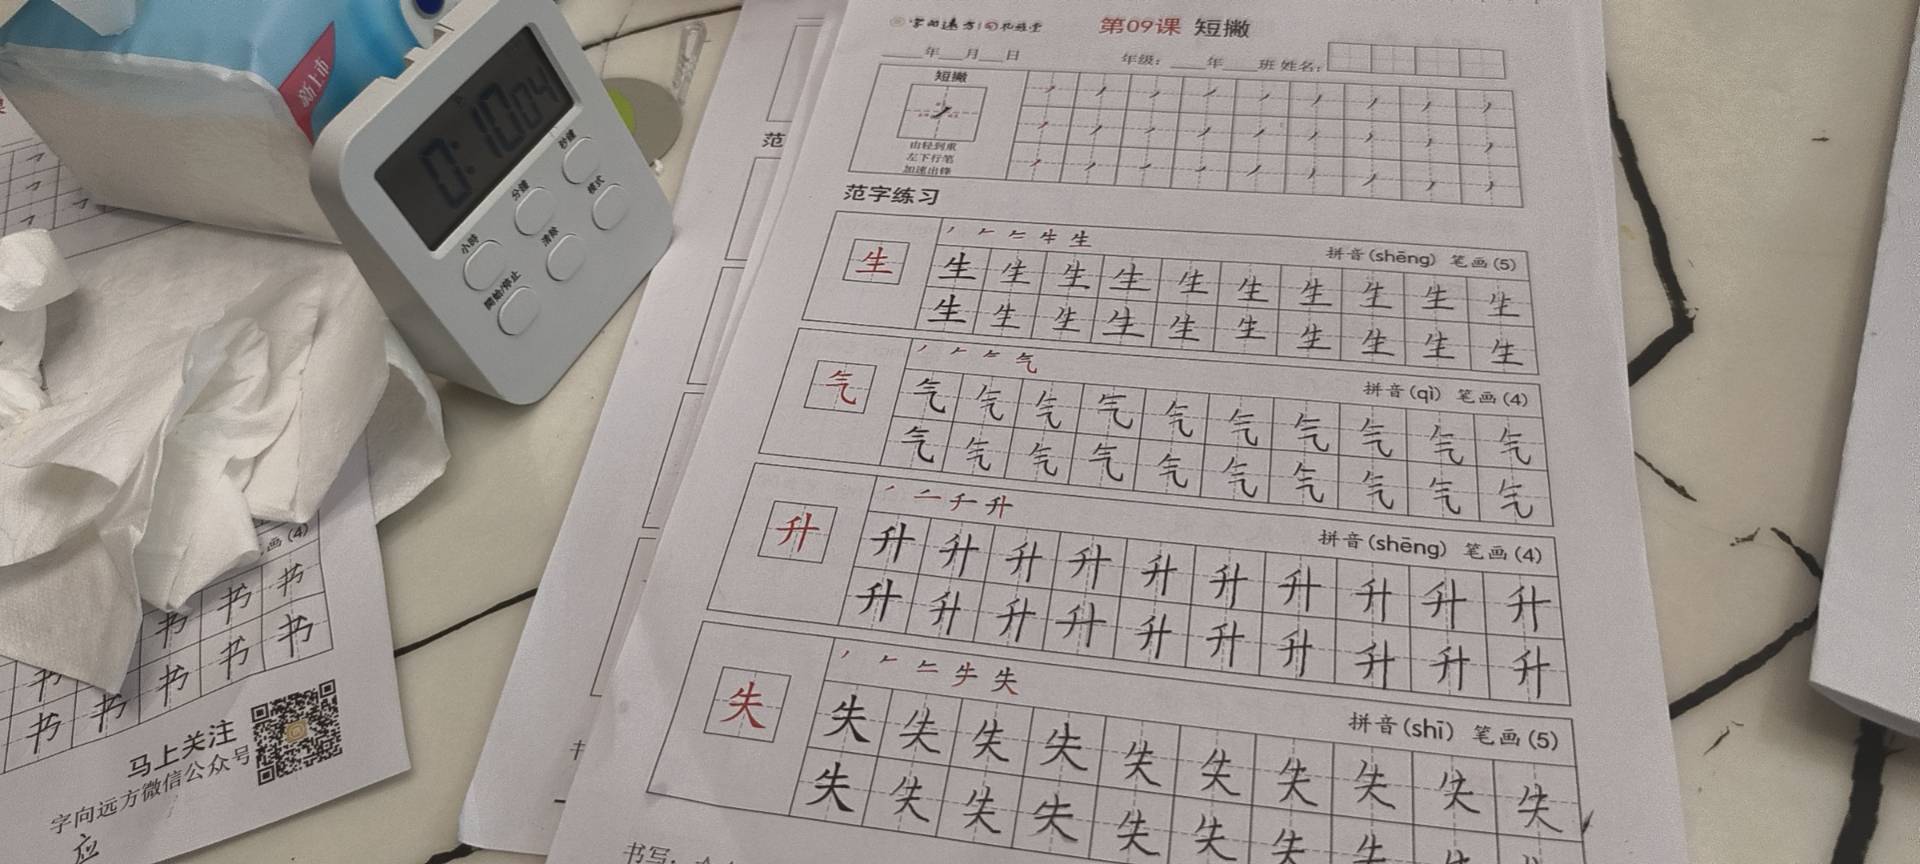 新上市
0:10 04
小時
分鐘
秒鐘
開始/停止
清除
模式
(4)
书 书 书
书 书 书 书 书
马上关注
字向远方微信公众号
应
范
第09课 短撇
年 月 日 年级: 年 班 姓名:
短撇
由轻到重
左下行笔
加速出锋
范字练习
生
牛 生
拼音(shēng) 笔画(5)
生 生 生 生 生 生 生 生 生 生
生 生 生 生 生 生 生 生 生 生
气
气
拼音(qì) 笔画(4)
气 气 气 气 气 气 气 气 气 气
气 气 气 气 气 气 气 气 气 气
升
升
拼音(shēng) 笔画(4)
升 升 升 升 升 升 升 升 升 升
升 升 升 升 升 升 升 升 升 升
失
失
拼音(shī) 笔画(5)
失 失 失 失 失 失 失 失 失 失
失 失 失 失 失 失 失
书写: